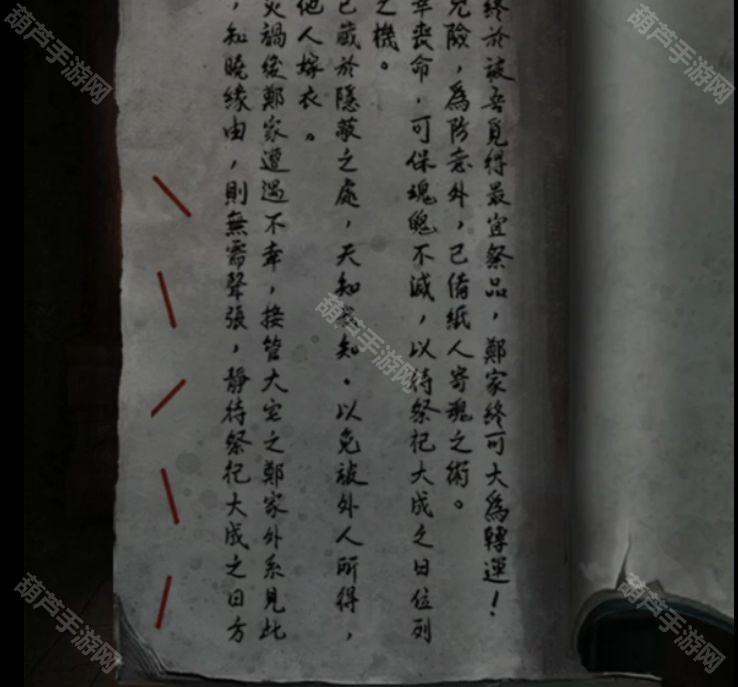 終於被吾覓得最宜祭品，鄭家終可大為轉運！
兇險，為防意外，已備紙人寄魂之術。
幸喪命，可保魂魄不滅，以待祭祀大成之日位列
之機。
已藏於隱蔽之處，天知 知。以免被外人所得，
他人嫁衣。
災禍後鄭家遭遇不幸，接管大宅之鄭家外系見此
，知曉緣由，則無需聲張，靜待祭祀大成之日方
葫芦手游网
葫芦手游网
葫芦手游网
葫芦手游网
葫芦手游网